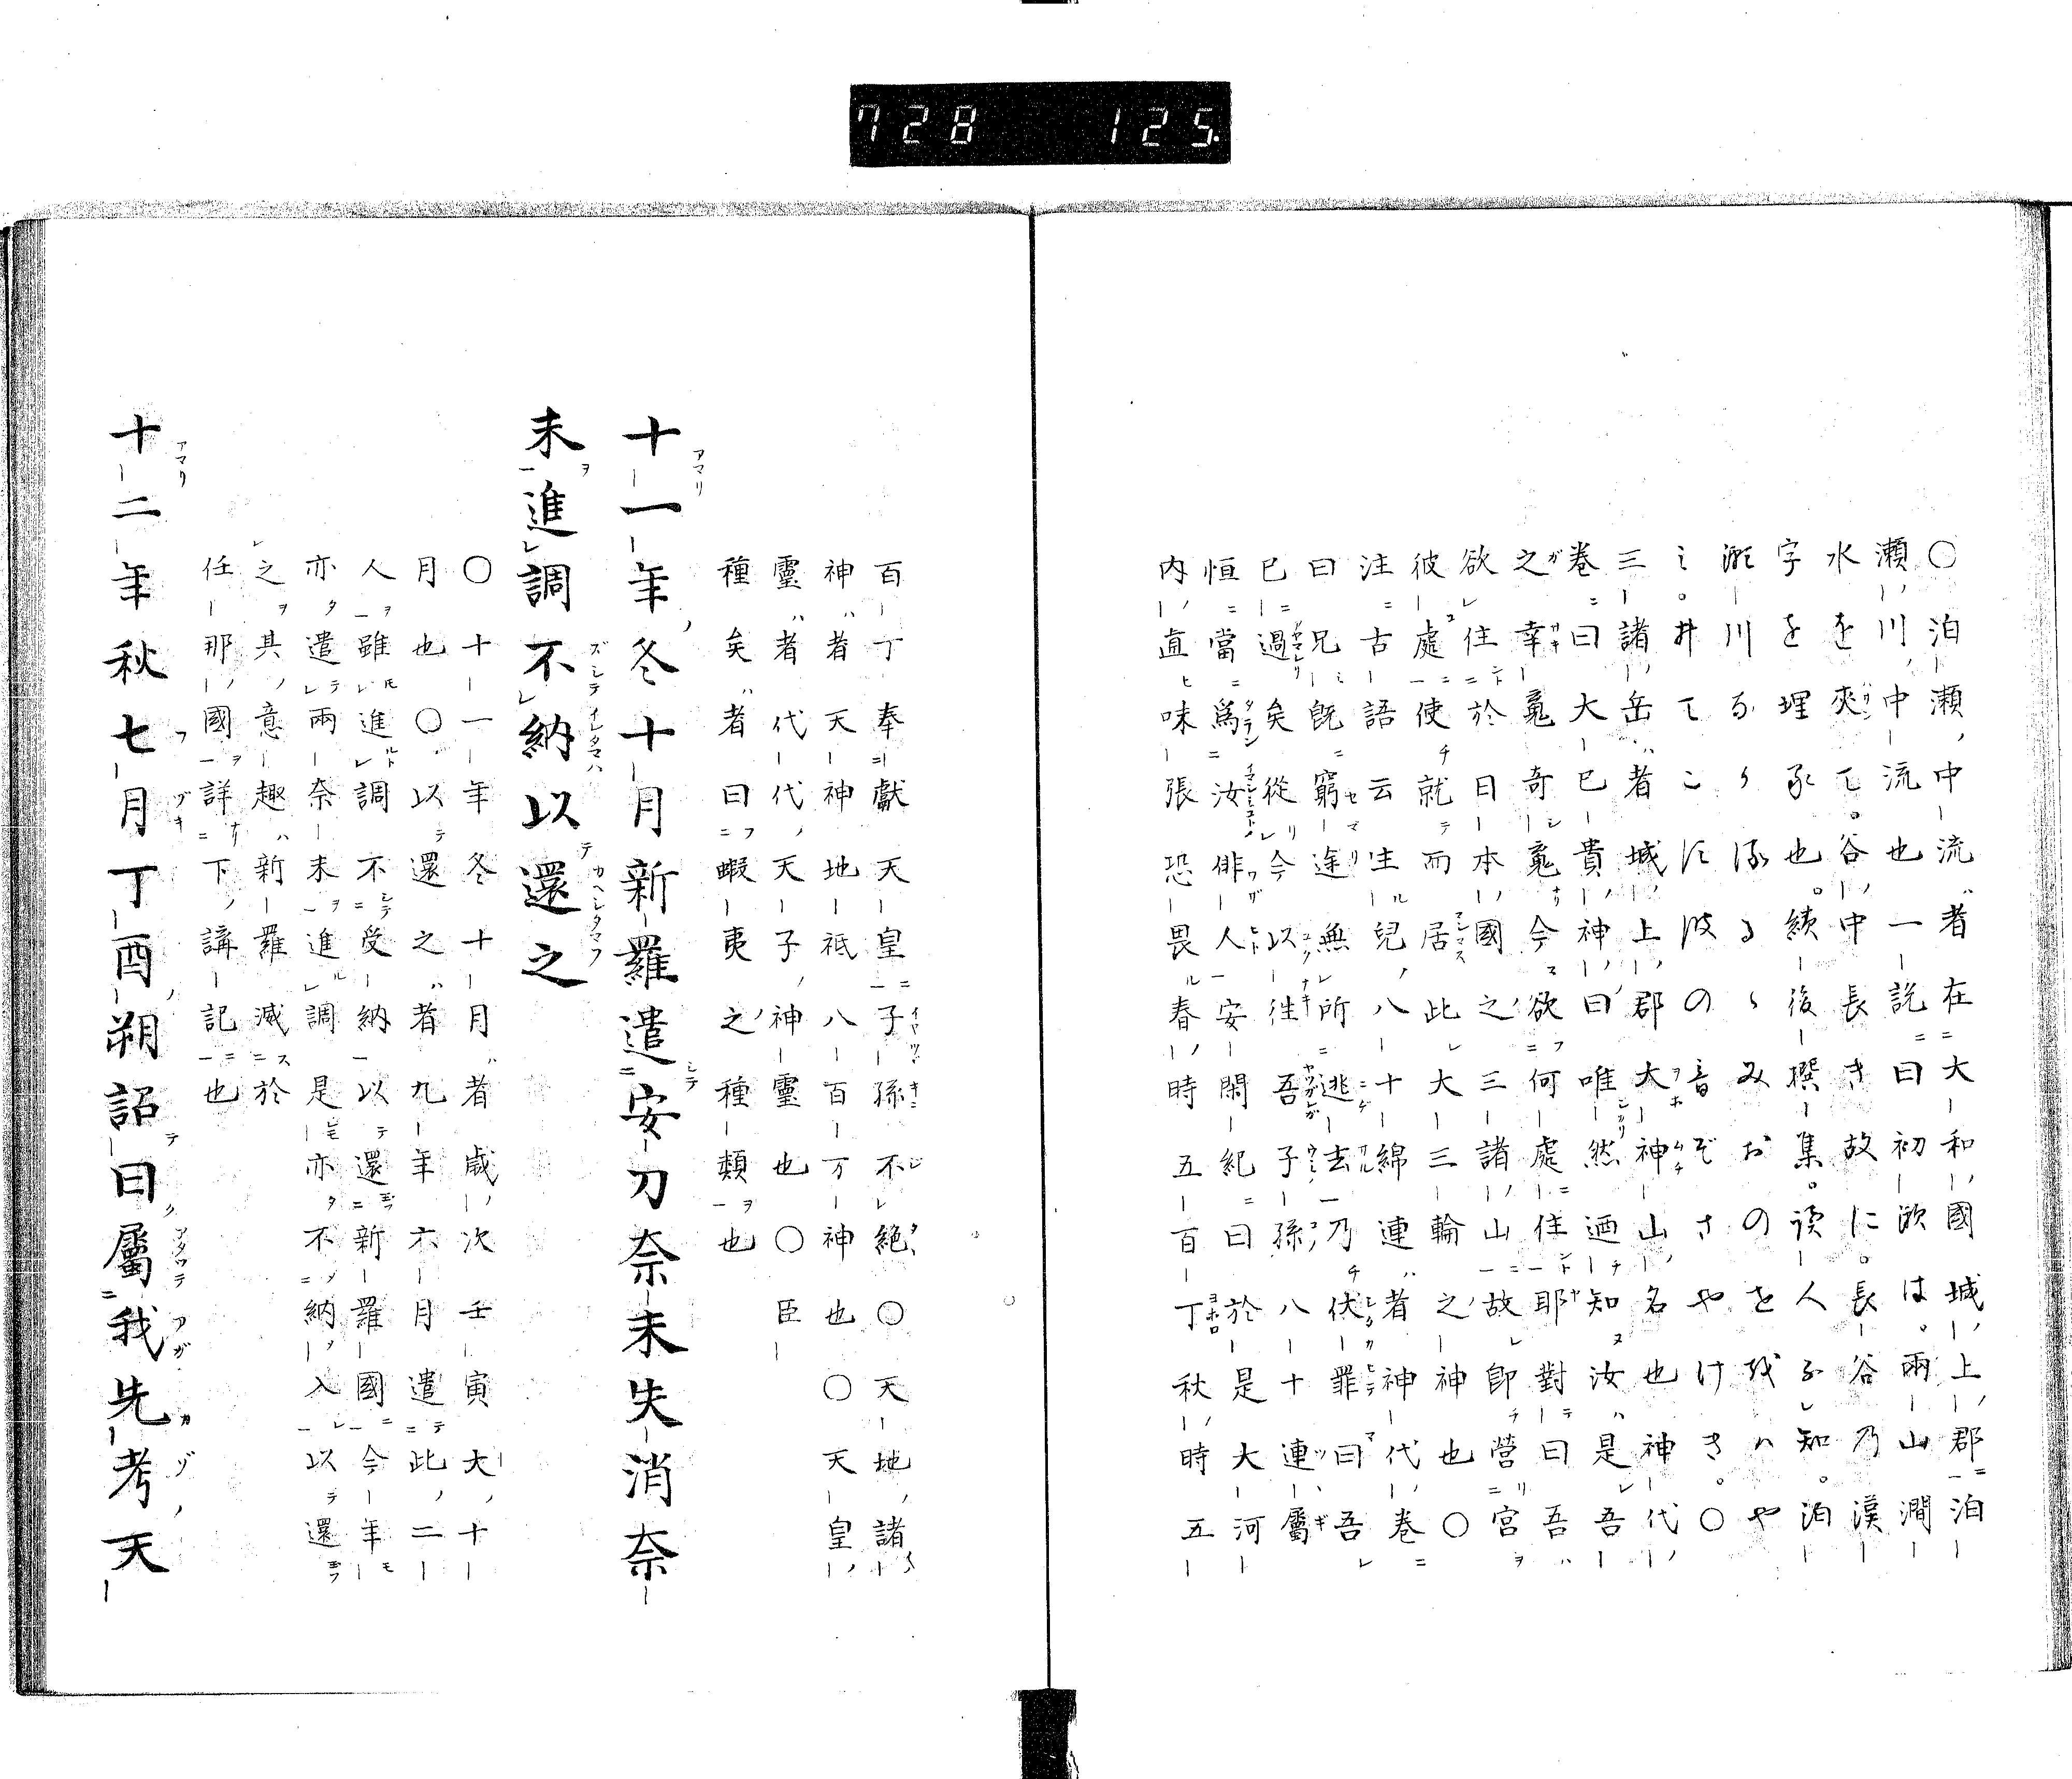 728 125
〇泊瀬中流者在大和國城上郡泊
瀬川中流也一說曰初瀬は兩山澗
水を夾て谷中長き故に長谷乃漢
字を埋豕也續後撰集读人不知泊
三諸岳者城上郡大神山名也神代
卷曰大已貴神曰唯然迺知汝是吾
之幸䰟奇䰟今欲何處住耶對曰吾
欲住於日本國之三諸山故即營宮
彼處使就而居此大三輪之神也〇
注古語云生兒八十綿連者神代卷
曰兄旣窮途無所逃去乃伏罪曰吾
已過矣從今以徃吾子孫八十連屬
恒當爲汝俳人安閑紀曰於是大河
内直味張恐畏春時五百丁秋時五
百丁奉獻天皇子孫不絶〇天地諸
神者天神地祇八百万神也〇天皇
靈者代代天子神靈也〇臣
種矣者曰蝦夷之種類也
十一年冬十月新羅遣安刀奈末失消奈
末進調不納以還之
〇十一年冬十月者歲次壬寅大十
月也〇以還之者九年六月遣此二
人雖進調不受納以還新羅國今年
亦遣兩奈末進調是亦不納入以還
之其意趣新羅滅於
任那國詳下講記也
十二年秋七月丁酉朔詔曰屬我先考天